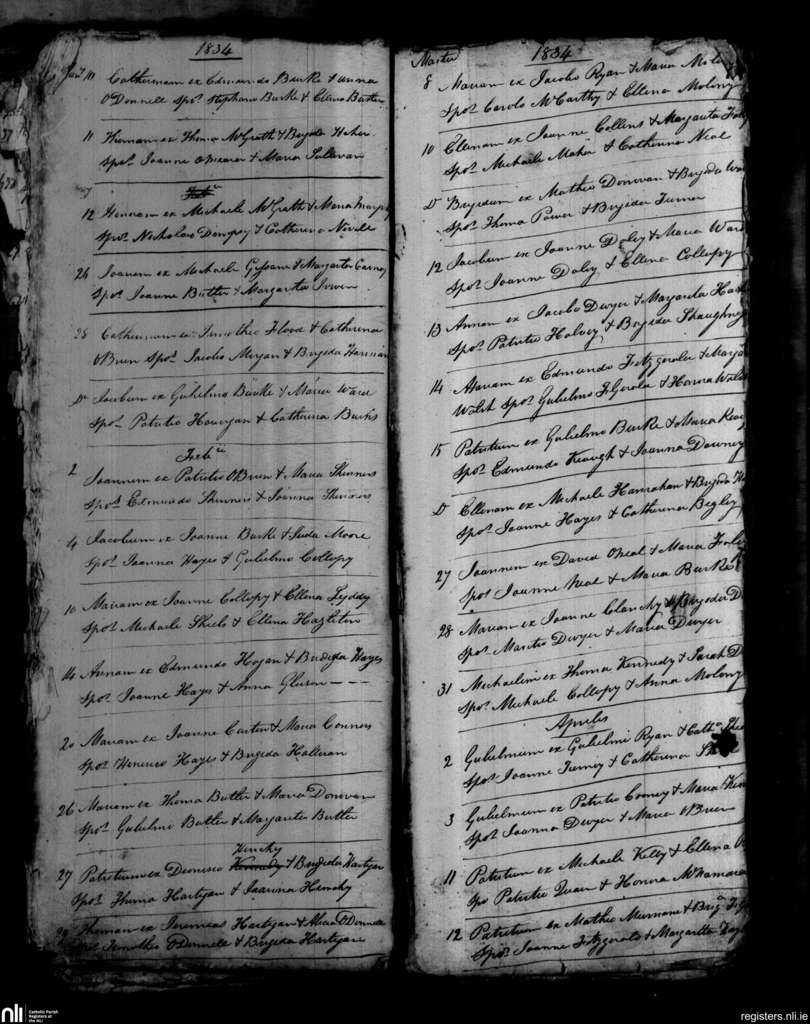 1834
Jan 10 Catherinam ex Edmundo Burke & Anna
O'Donnell Spor Stephano Burke & Ellena Butler
11 Thomam ex Thoma McGrath & Brigida Maher
Spor Joanne & Maria Sullivan
12 Honoram ex Michaele McGrath & Maria
Spor Nicholao Dempsy & Catherina Nevill
26 Joannem ex Michaele & Margarita
Spor Joanne Butler & Margarita
28 Catherinam ex Timotheo Flood & Catherina
O'Brien Spor Jacobo Meagan & Brigida
Do Jacobum ex Gulielmo Burke & Maria Ward
Spor Patritio & Catherina Burke
Feb
2 Joannem ex Patritio O'Brien & Maria Skinners
Spor Edmundo Skinners & Joanna Skinners
4 Jacobum ex Joanne Burke & Moore
Spor Joanna Hayes & Gulielmo Collopy
10 Mariam ex Joanne Collopy & Ellena Leyddy
Spor Michaele Shiels & Ellena Hazleton
14 Annam ex Edmundo Hogan & Brigida Hayes
Spor Joanne Hayes & Anna
20 Mariam ex Joanne Carter & Maria Connors
Spor Henrico Hayes & Brigida
26 Mariam ex Thoma Butler & Maria Donovan
Spor Gulielmo Butler & Margarita Butler
27 Patritium ex Dionisio Kennedy & Brigida Hartigan
Spor Thoma Hartigan & Joanna
28 Thomam ex Jeremias Hartigan & Alicia O'Donnell
Spor Timotheo O'Donnell & Brigida Hartigan
Martii 1834
8 Mariam ex Jacobo Ryan & Maria
Spor Carolo McCarthy & Ellena Molony
10 Ellenam ex Joanne Collins & Margarita
Spor Michaele Maher & Catherina Neal
Do Brigidam ex Matheo Donovan & Brigida
Spor Thoma Power & Brigida Turner
12 Jacobum ex Joanne Daley & Maria Ward
Spor Joanne Daley & Ellena Collopy
13 Annam ex Jacobo Dwyer & Margarita
Spor Patritio Halvey & Brigida Shaughnes
14 Mariam ex Edmundo Fitzgerald &
Walsh Spor Gulielmo FGerald & Honora Walsh
15 Patritium ex Gulielmo Burke & Maria
Spor Edmundo Keough & Joanna Downey
Do Ellenam ex Michaele Hanrahan & Brigida
Spor Joanne Hayes & Catherina Begley
27 Joannem ex David Oneal & Maria
Spor Joanne Neal & Maria Burke
28 Mariam ex Joanne Clanchy & Brigida
Spor Dwyer & Maria Dwyer
31 Michaelem ex Thoma Kennedy & Sarah
Spor Michaele Collopy & Anna Molony
Aprilis
2 Gulielmum ex Gulielmi Ryan & Cath
Spor Joanne Tierney & Catherina
3 Gulielmum ex Patritio & Maria
Spor Joanna Dwyer & Maria OBrien
11 Patritium ex Michaele Kelly & Ellena
Spo Patritio & Honora McNamara
12 Patritium ex Matheo Murnane & Brig
Spor Joanne Fitzgerald & Margarita
nli
Catholic Parish
Registers at
the NLI
registers.nli.ie